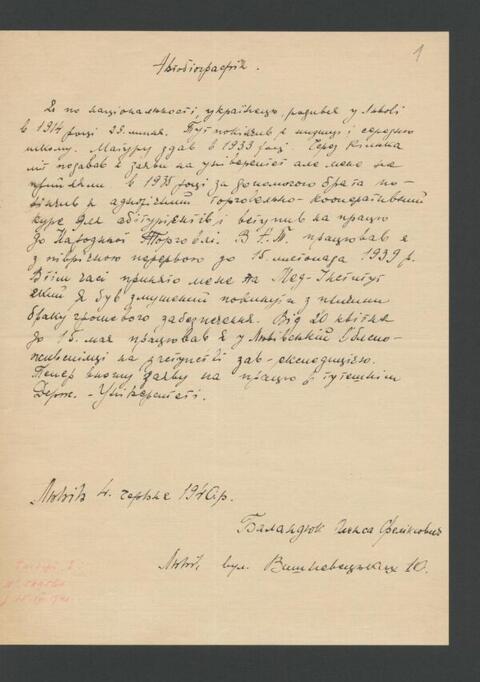 1
Автобіографія.
Я по національності, українець, родився у Львові
в 1914 році 23. липня. Тут покінчив я нищу і середню
школу. Матуру здав в 1933 році. Через кілька
літ подавав я заяви на університет але мене не
приймали. В 1935 році за допомогою брата по-
кінчив я однорічний Торговельно-кооперативний
курс для абітурієнтів і вступив на працю
до Народної Торговлі. В Н.Т. працював я
з піврічною перервою до 15. листопада 1939 р.
В тім часі прийнято мене на Мед-Інститут
який я був змушений покинути з причини
браку грошевого забезпечення. Від 20 квітня
до 15. мая працював я у Львівській Обласно-
на заступстві зав-експедицією.
Тепер вношу заяву на працю в тутешнім
Держ. - Університеті.
Львів 4. червня 1940р.
Баландюк Феліксович
Львів, вул. Вишневецьких 10.